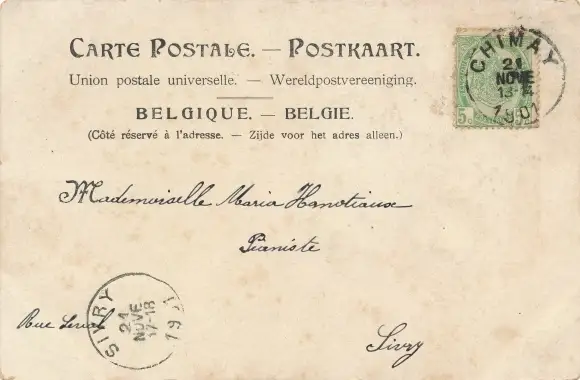 CARTE POSTALE. — POSTKAART.
Union postale universelle. — Wereldpostvereeniging.
BELGIQUE. — BELGIE.
(Côté réservé à l'adresse. — Zijde voor het adres alleen.)
CHIMAY
21
NOVE
1901
5c
Mademoiselle Maria Hanotiaux
Pianiste
SIVRY
21
NOVE
17-18
19
Rue
Sivry